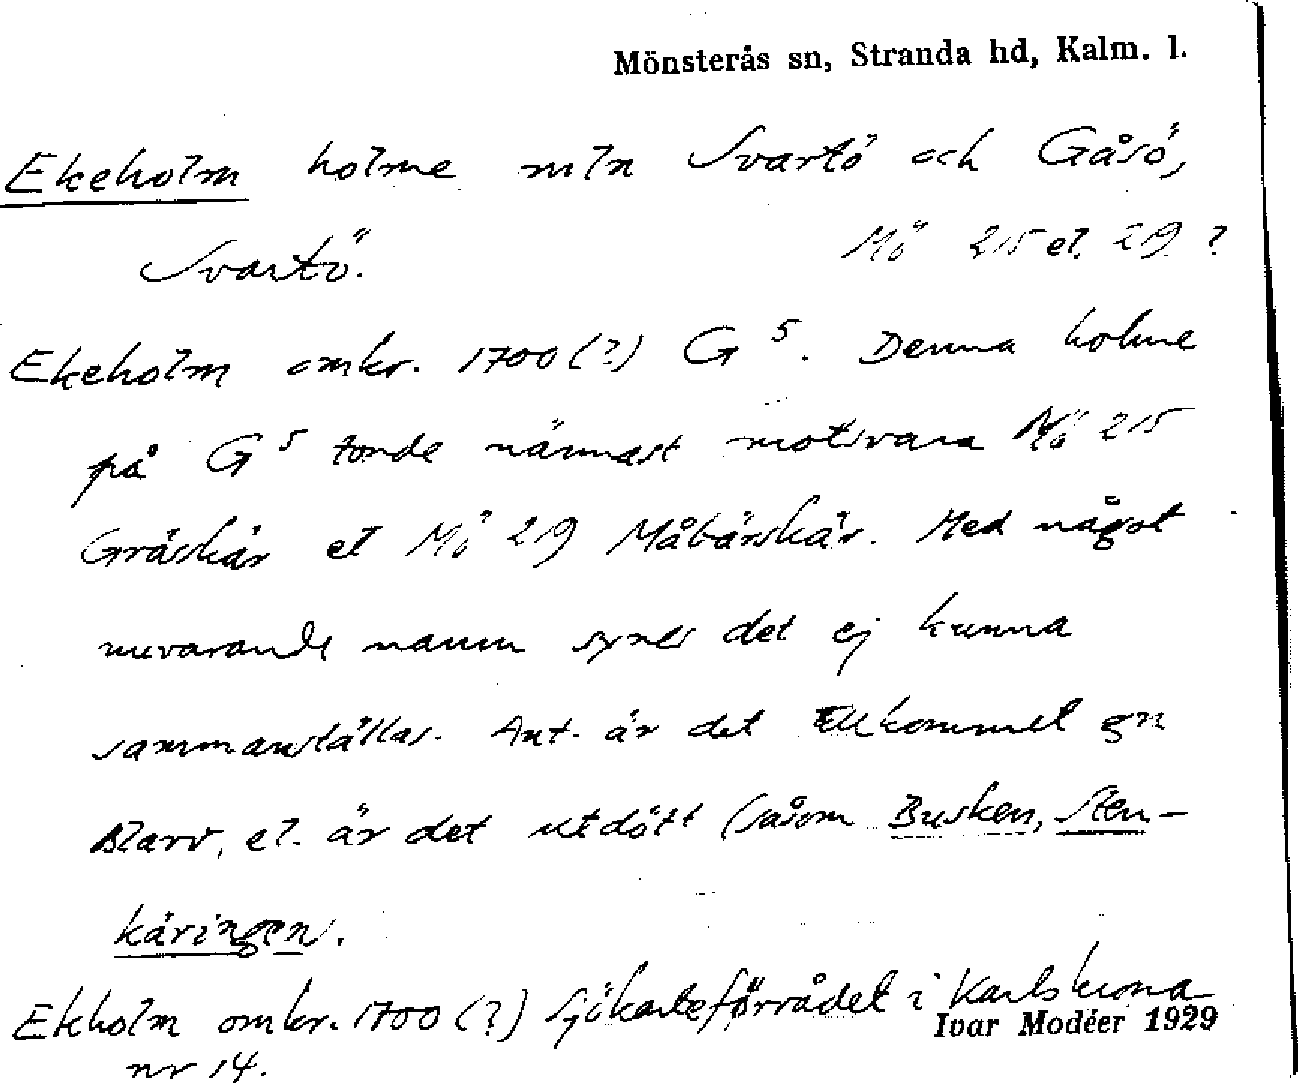 Mönsterås sn, Stranda hd, Kalm. l.
Ekeholm holme mln Svartö och Gåsö,
Svartö. Mö 215 el. 219 ?
Ekeholm omkr. 1700 (?) G 5. Denna holme
på G 5 torde närmast motsvara Mö 215
Gräskär el Mö 219 Måbärskär. Med något
nuvarande namn synes det ej kunna
sammanställas. Ant. är det tillkommet gn
el. är det utdött (såsom Busken, Sten-
käringen.
Ekholm omkr. 1700 (?) Sjökarteförrådet i Karlskrona
nr 14.
Ivar Modéer 1929